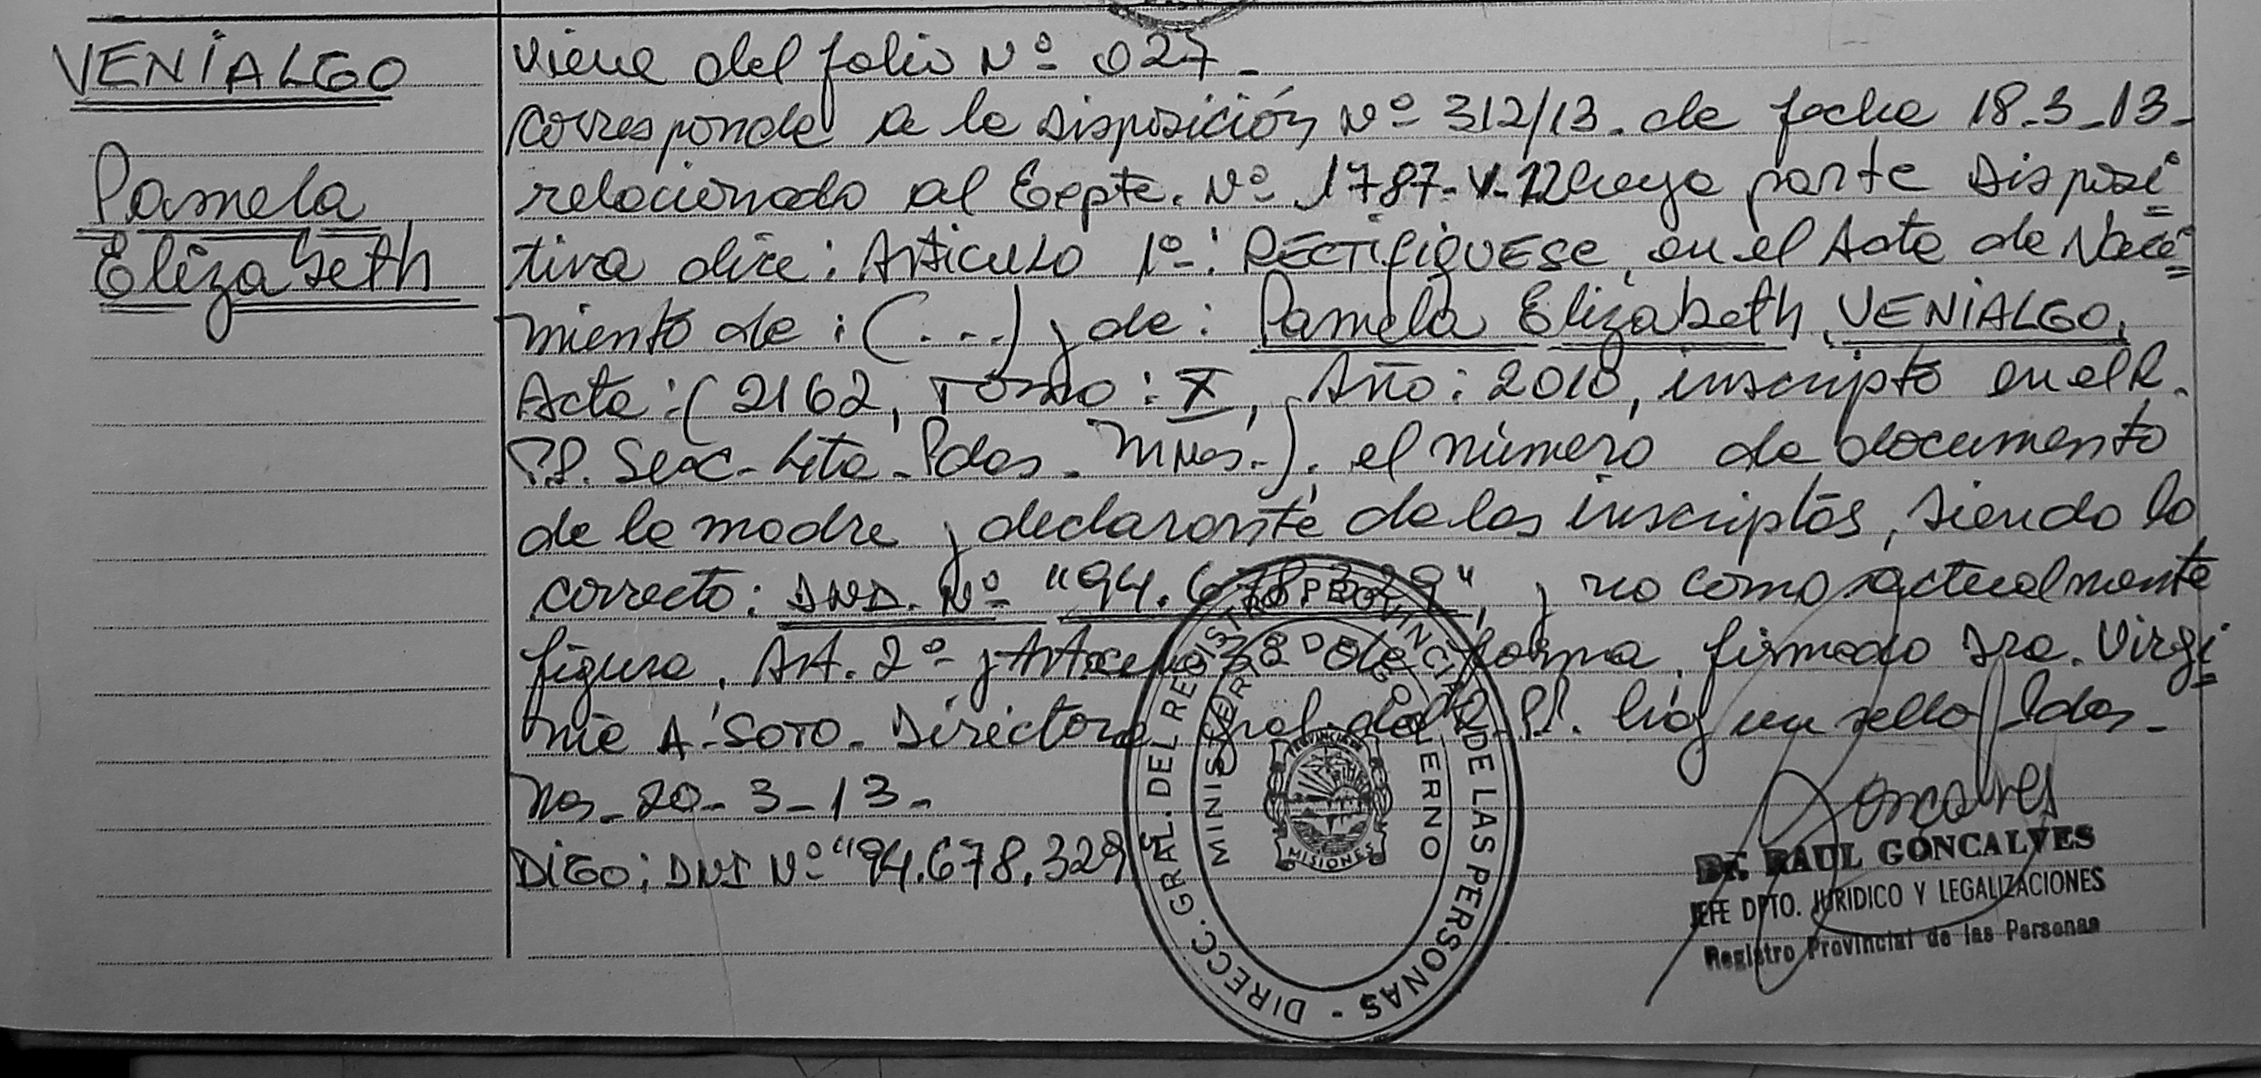 VENIALGO
Pamela
Elizabeth
viene del folio Nº 027-
corresponde a la Disposición Nº 312/13. de fecha 18-3-13-
relacionado al Expte. Nº 1787-V-12 cuya parte Disposi=
tiva dice: Articulo 1º: RECTIFIQUESE, en el Acta de Naci=
miento de: (...) y de: Pamela Elizabeth, VENIALGO,
Acta: (2162, Tomo: X, Año: 2010, inscripto en el R.
P.P. Secc- 4ta- Pdas. Mnes.-). el número de documento
de la madre y declarante de los inscriptos, siendo lo
correcto: DND. Nº "94.678.329", y no como actualmente
figura, Art. 2º y Articulo 3º De forma, firmado Dra. Virgi=
nia A. Soto. Directora Gral. del R.P.P. hay un sello Pdas-
Mns- 20-3-13-
DIGO: DNI Nº "94.678.329
DIRECC. GRAL. DEL REGISTRO PROVINCIAL DE LAS PERSONAS -
MINISTERIO DE GOBIERNO
PROVINCIA DE
MISIONES
Goncalves
Dr. RAUL GONCALVES
JEFE DPTO. JURIDICO Y LEGALIZACIONES
Registro Provincial de las Personas